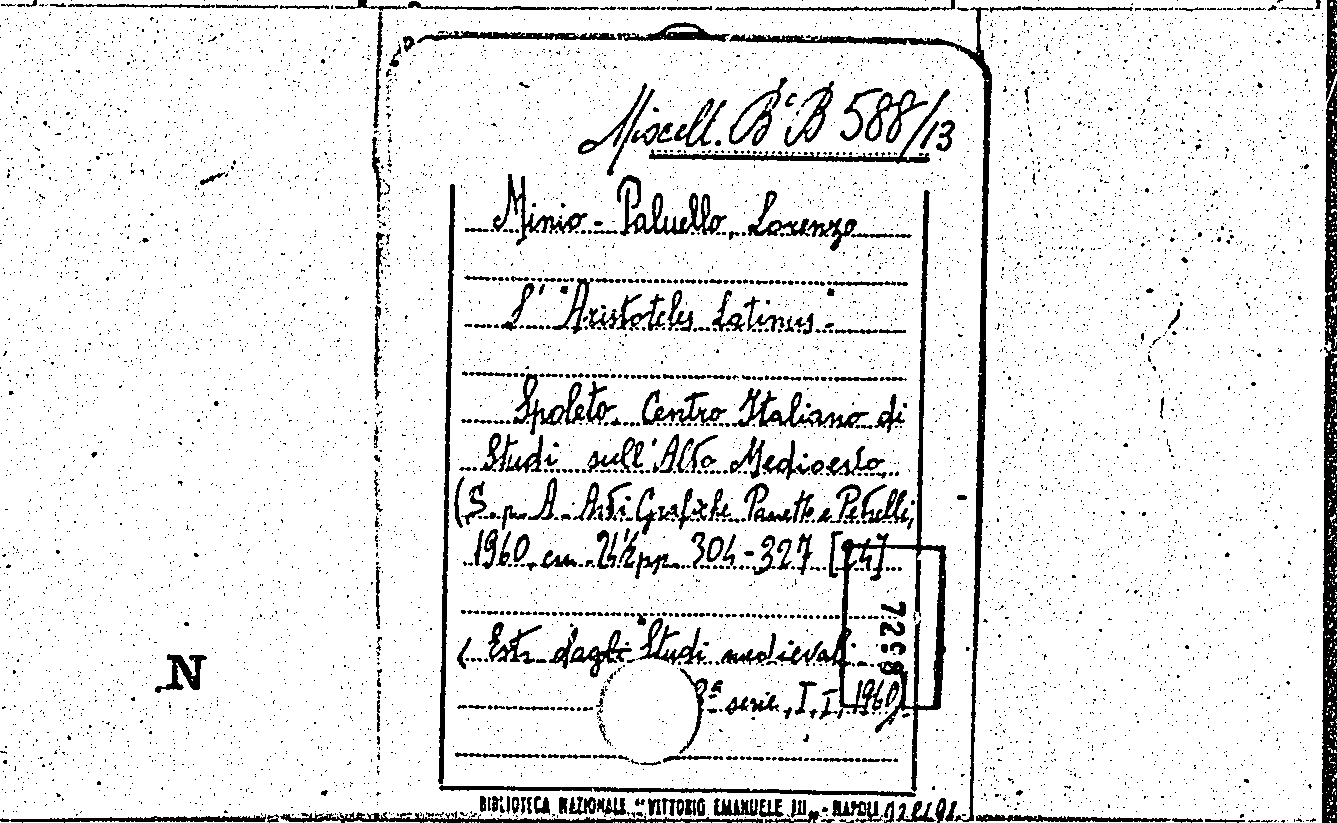 Miscell. BᶜB 588/13
Minio-Paluello, Lorenzo
L' "Aristoteles Latinus".
Spoleto, Centro Italiano di
Studi sull'Alto Medioevo
(S.p.A. Arti Grafiche Panetto e Petrelli,
1960, cm. 24½ pp. 304-327 [24]
(Estr. dagli "Studi medievali
3ª serie, I, I, 1960)
7298
N
BIBLIOTECA NAZIONALE "VITTORIO EMANUELE III" - NAPOLI